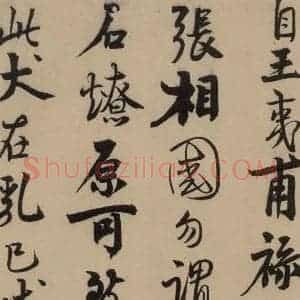 自王夷甫祿
張相國勿謂
君燎原可
此犬在乳已
Shufaziliao.COM